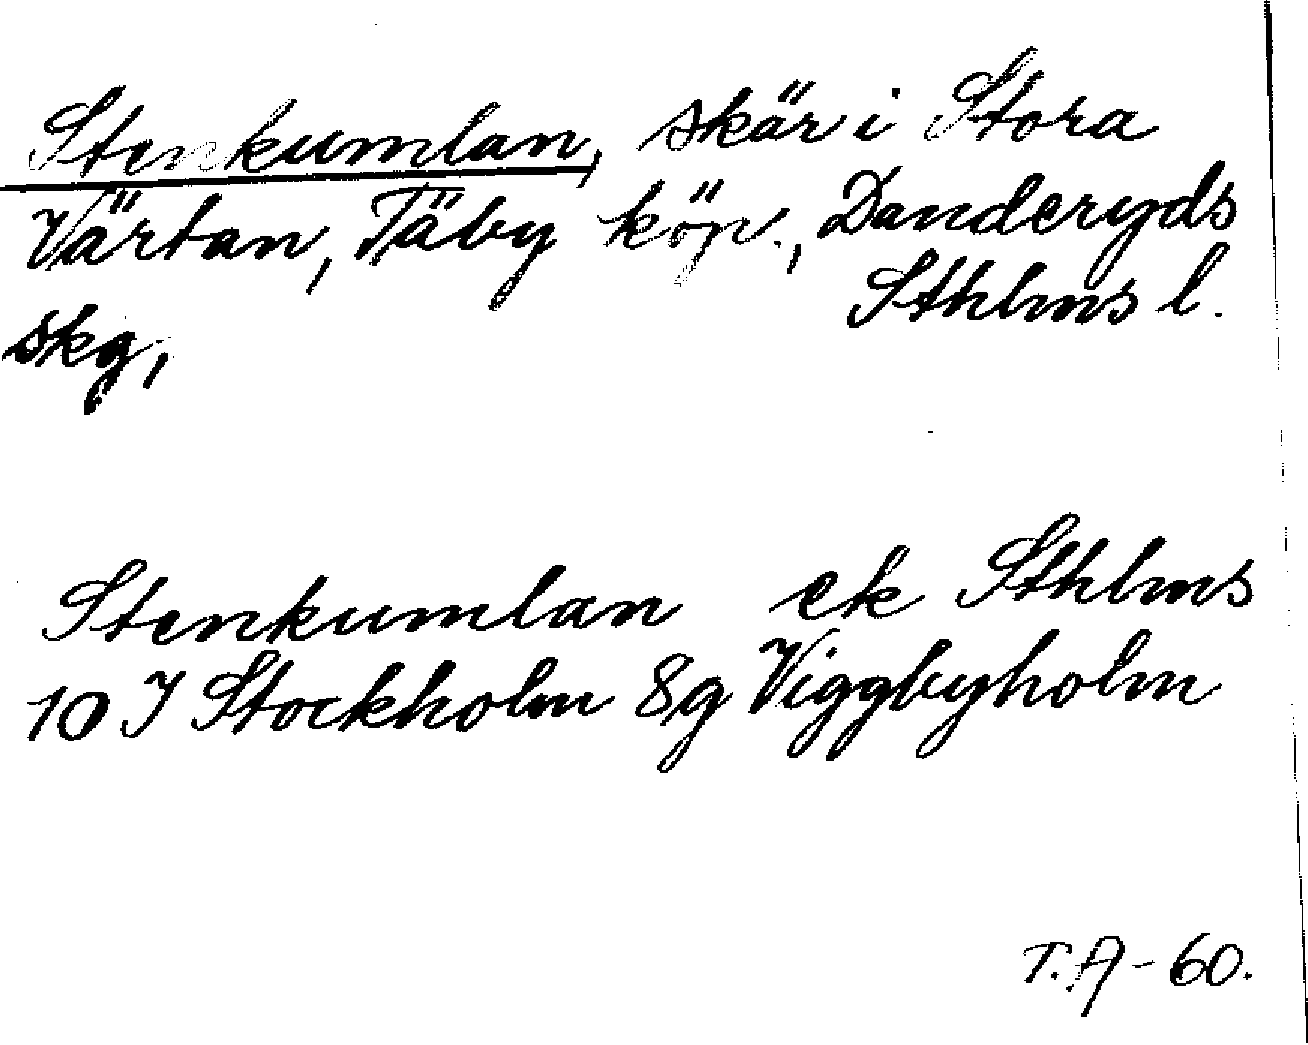 Stenkumlan, skär i Stora
Värtan, Täby köp., Danderyds
skg, Sthlms l.
Stenkumlan ek Sthlms
10 I Stockholm 8g Viggbyholm
T.A-60.